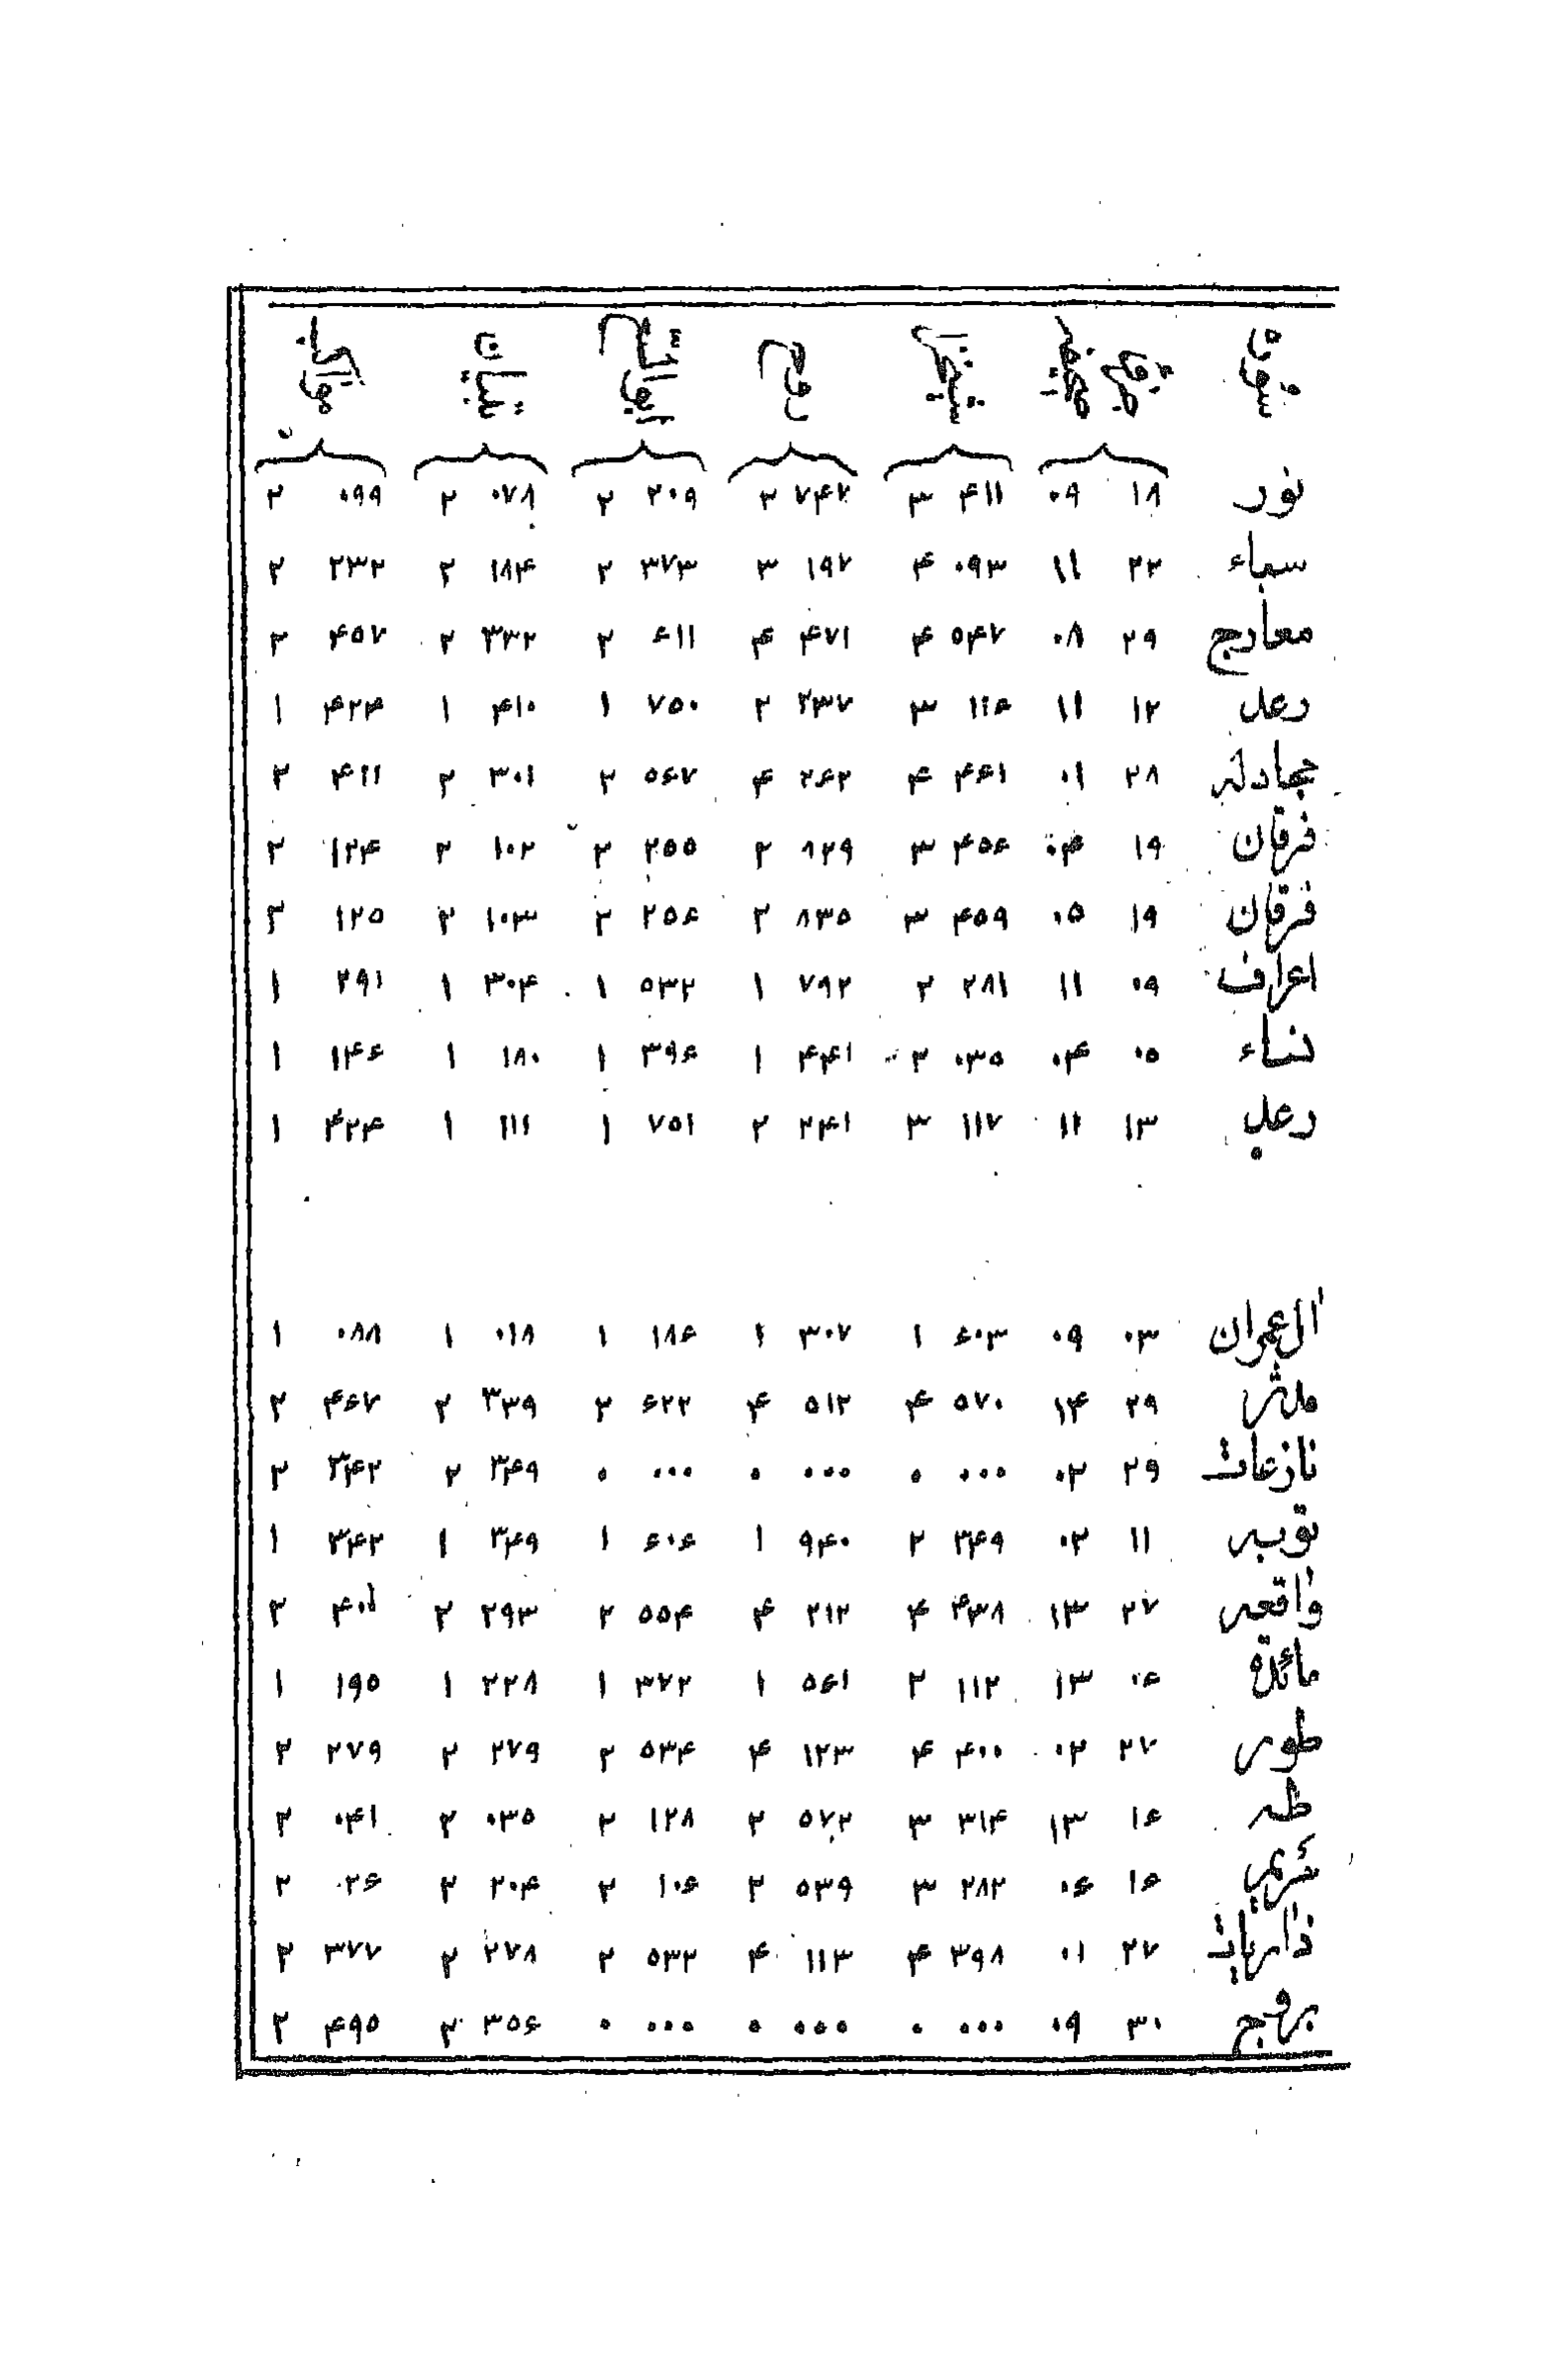 سوره جزو تنزیل روح ابو السعود تبیان مواکب
نور ۱۸ ۰۹ ۴۱۱ ۳ ۷۴۲ ۲ ۲۰۹ ۲ ۰۷۸ ۲ ۰۹۹ ۲
سباء ۲۲ ۱۱ ۰۹۳ ۴ ۱۹۷ ۳ ۳۷۳ ۲ ۱۸۴ ۲ ۲۳۲ ۲
معارج ۲۹ ۰۸ ۵۴۷ ۴ ۴۷۱ ۴ ۶۱۱ ۲ ۳۳۲ ۲ ۴۵۷ ۲
رعد ۱۲ ۱۱ ۱۱۶ ۳ ۲۳۷ ۲ ۷۵۰ ۱ ۴۱۰ ۱ ۴۲۴ ۱
مجادله ۲۸ ۰۱ ۴۶۱ ۴ ۲۶۲ ۴ ۵۶۷ ۲ ۳۰۱ ۲ ۴۱۱ ۲
فرقان ۱۹ ۰۴ ۴۵۶ ۳ ۸۲۹ ۲ ۲۵۵ ۲ ۱۰۲ ۲ ۱۲۴ ۲
فرقان ۱۹ ۰۵ ۴۵۹ ۳ ۸۳۵ ۲ ۲۵۶ ۲ ۱۰۳ ۲ ۱۲۵ ۲
اعراف ۰۹ ۱۱ ۲۸۱ ۲ ۷۹۲ ۱ ۵۳۲ ۱ ۳۰۴ ۱ ۲۹۱ ۱
نساء ۰۵ ۰۴ ۰۳۵ ۲ ۴۴۱ ۱ ۳۹۶ ۱ ۱۸۰ ۱ ۱۴۶ ۱
رعد ۱۳ ۱۱ ۱۱۷ ۳ ۲۴۱ ۲ ۷۵۱ ۱ ۱۱۱ ۱ ۴۲۴ ۱
ال عمران ۰۳ ۰۹ ۶۰۳ ۱ ۳۰۷ ۱ ۱۸۶ ۱ ۰۱۸ ۱ ۰۸۸ ۱
مدثر ۲۹ ۱۴ ۵۷۰ ۴ ۵۱۲ ۴ ۶۲۲ ۲ ۳۳۹ ۲ ۴۶۷ ۲
نازعات ۲۹ ۰۲ ۰۰۰ ۰ ۰۰۰ ۰ ۰۰۰ ۰ ۳۴۹ ۲ ۳۴۲ ۲
توبه ۱۱ ۰۲ ۳۴۹ ۲ ۹۴۰ ۱ ۶۰۶ ۱ ۳۴۹ ۱ ۳۴۲ ۱
واقعه ۲۷ ۱۳ ۴۳۸ ۴ ۲۱۲ ۴ ۵۵۴ ۲ ۲۹۳ ۲ ۴۰۱ ۲
مائدة ۰۶ ۱۳ ۱۱۲ ۲ ۵۶۱ ۱ ۳۷۲ ۱ ۲۲۸ ۱ ۱۹۵ ۱
طور ۲۷ ۰۲ ۴۰۰ ۴ ۱۲۳ ۴ ۵۳۴ ۲ ۲۷۹ ۲ ۲۷۹ ۲
طه ۱۶ ۱۳ ۳۱۴ ۳ ۵۷۲ ۲ ۱۲۸ ۲ ۰۳۵ ۲ ۰۴۱ ۲
مریم ۱۶ ۰۶ ۲۸۲ ۳ ۵۳۹ ۲ ۱۰۶ ۲ ۲۰۴ ۲ ۰۲۶ ۲
ذاریات ۲۷ ۰۱ ۳۹۸ ۴ ۱۱۳ ۴ ۵۳۲ ۲ ۲۷۸ ۲ ۳۷۷ ۲
بروج ۳۰ ۰۹ ۰۰۰ ۰ ۰۰۰ ۰ ۰۰۰ ۰ ۳۵۶ ۲ ۴۹۵ ۲